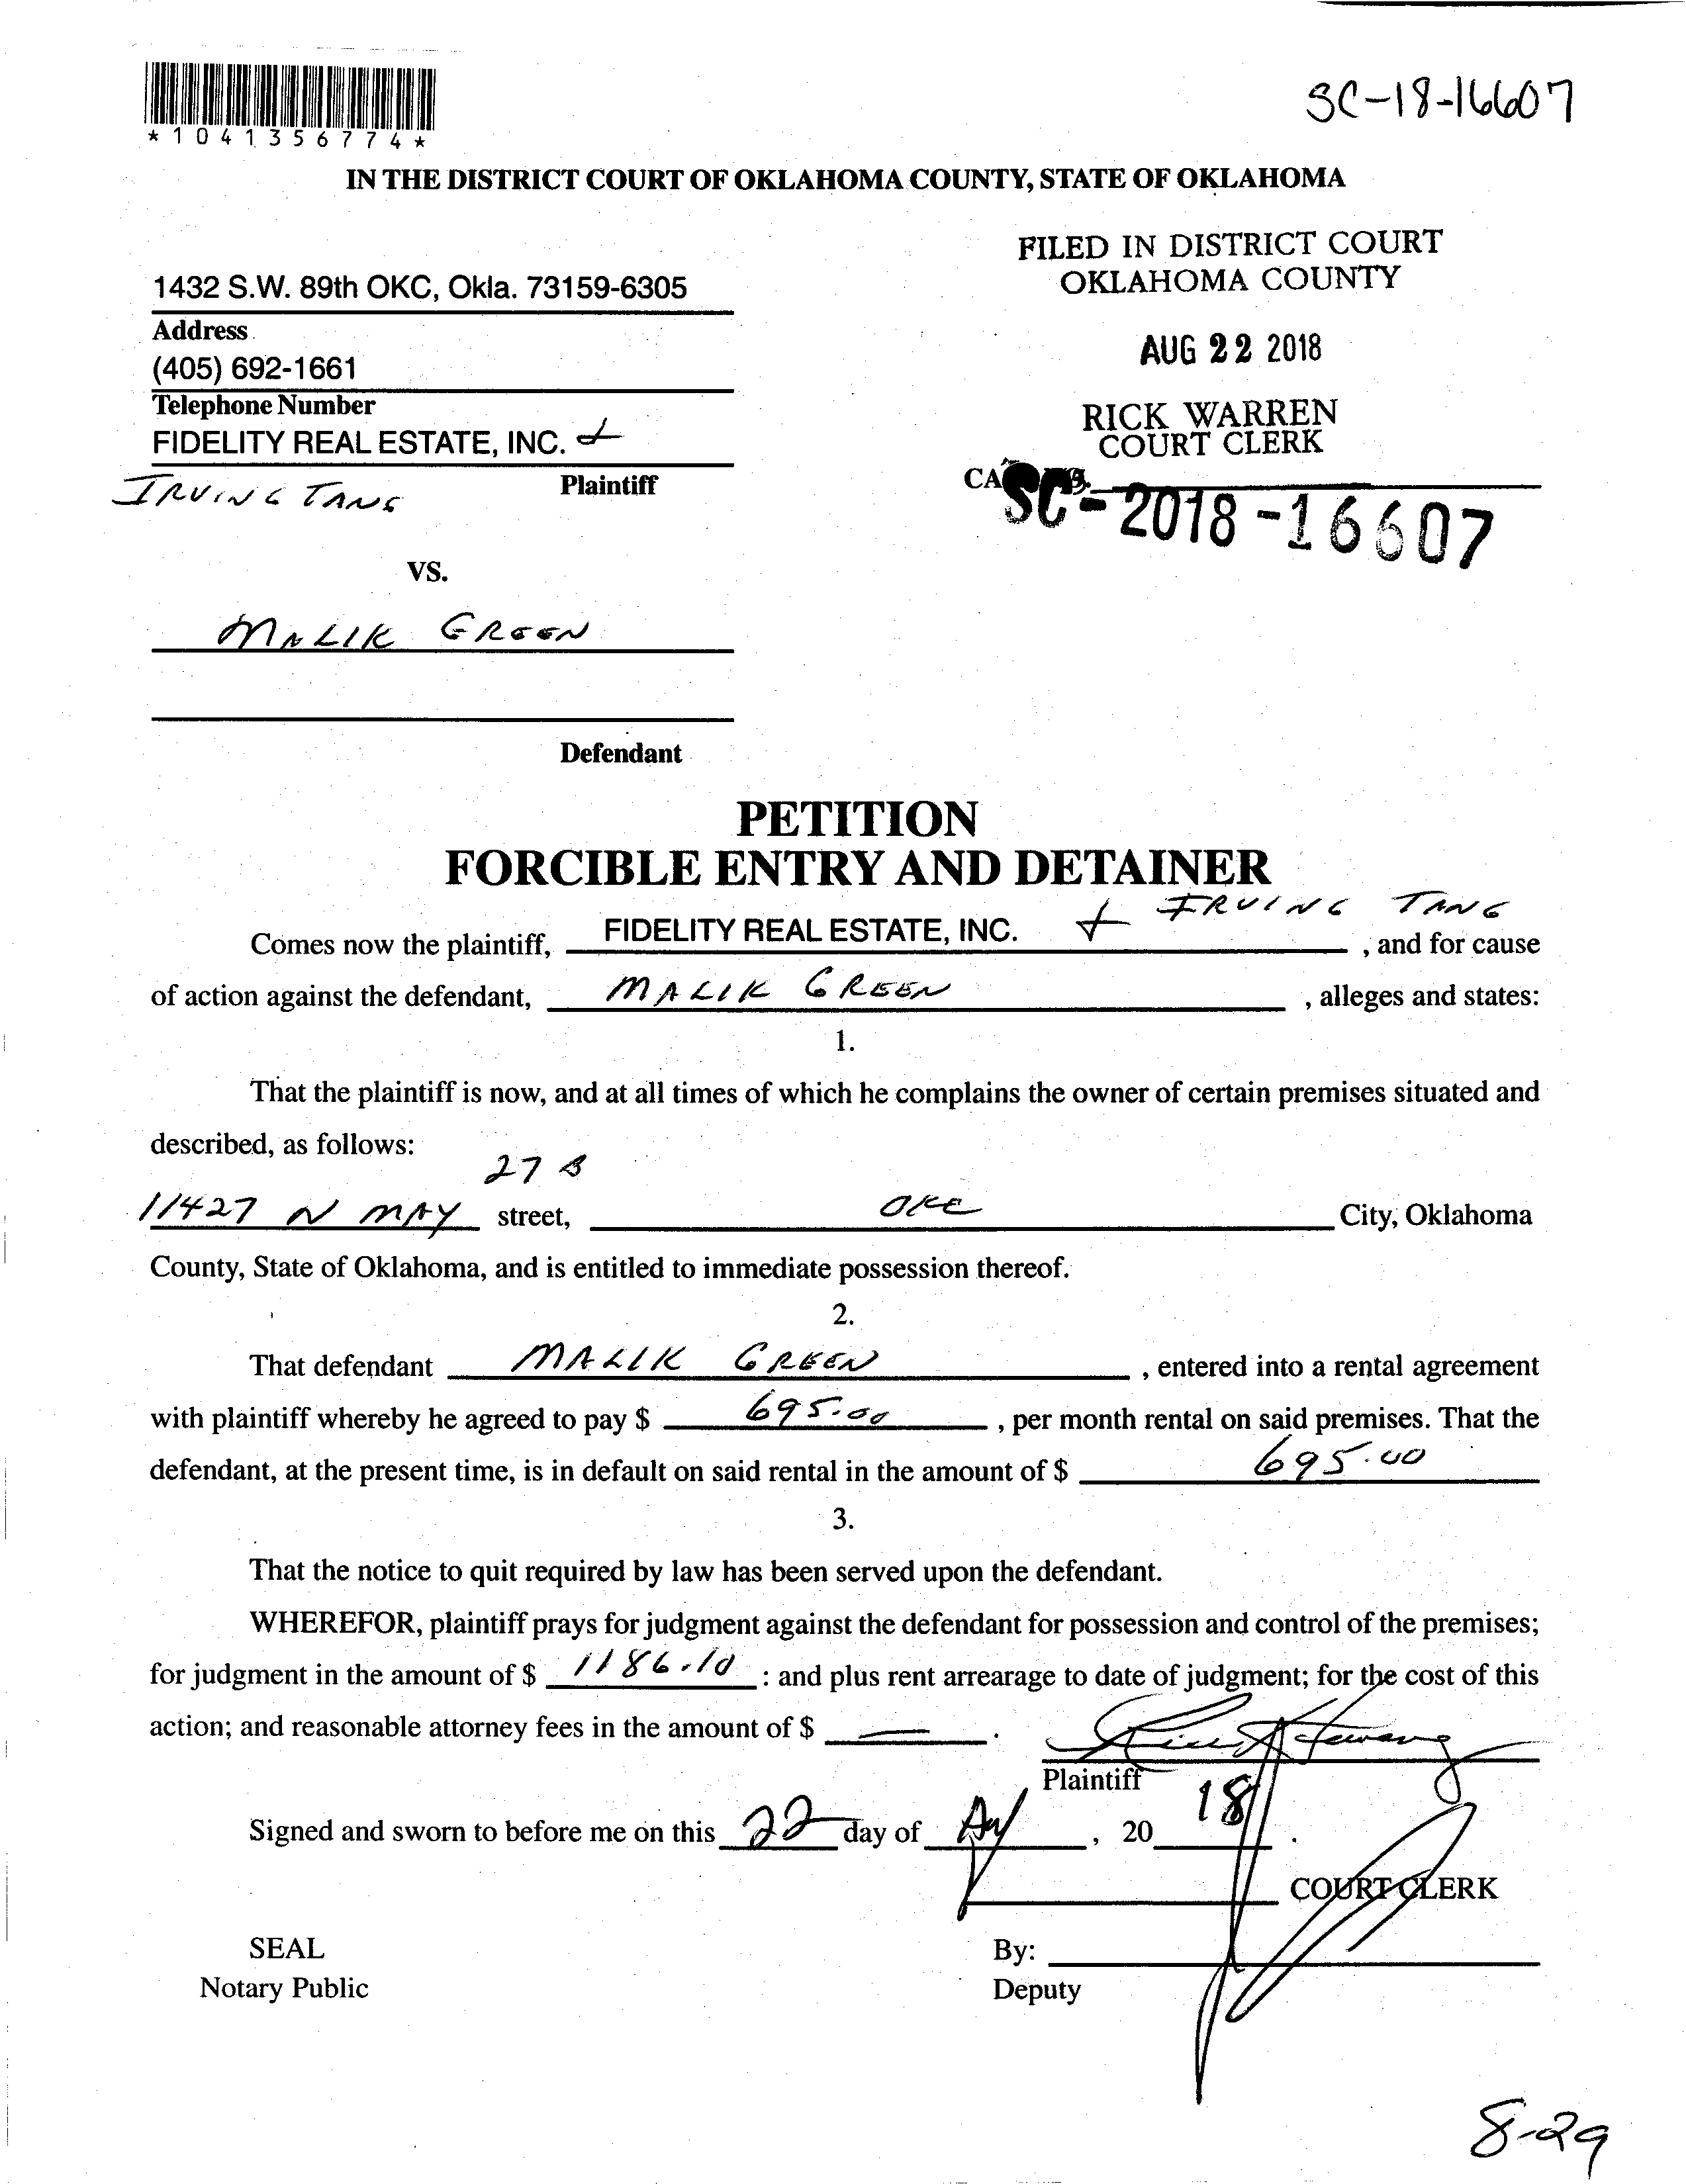 SC-18-16607
*1041356774*
IN THE DISTRICT COURT OF OKLAHOMA COUNTY, STATE OF OKLAHOMA
FILED IN DISTRICT COURT
OKLAHOMA COUNTY
1432 S.W. 89th OKC, Okla. 73159-6305
Address
AUG 22 2018
(405) 692-1661
Telephone Number
RICK WARREN
COURT CLERK
FIDELITY REAL ESTATE, INC. +
IRVING TANG Plaintiff
SC-2018-16607
VS.
MALIK GREEN
Defendant
PETITION
FORCIBLE ENTRY AND DETAINER
Comes now the plaintiff, FIDELITY REAL ESTATE, INC. + IRVING TANG, and for cause
of action against the defendant, MALIK GREEN, alleges and states:
1.
That the plaintiff is now, and at all times of which he complains the owner of certain premises situated and
described, as follows:
27 B
11427 N MAY street, OKC City, Oklahoma
County, State of Oklahoma, and is entitled to immediate possession thereof.
2.
That defendant MALIK GREEN, entered into a rental agreement
with plaintiff whereby he agreed to pay $ 695.00, per month rental on said premises. That the
defendant, at the present time, is in default on said rental in the amount of $ 695.00
3.
That the notice to quit required by law has been served upon the defendant.
WHEREFOR, plaintiff prays for judgment against the defendant for possession and control of the premises;
for judgment in the amount of $ 1186.10 : and plus rent arrearage to date of judgment; for the cost of this
action; and reasonable attorney fees in the amount of $ — .
Plaintiff
Signed and sworn to before me on this 22 day of Aug, 2018.
COURT CLERK
SEAL
Notary Public
By:
Deputy
8-29